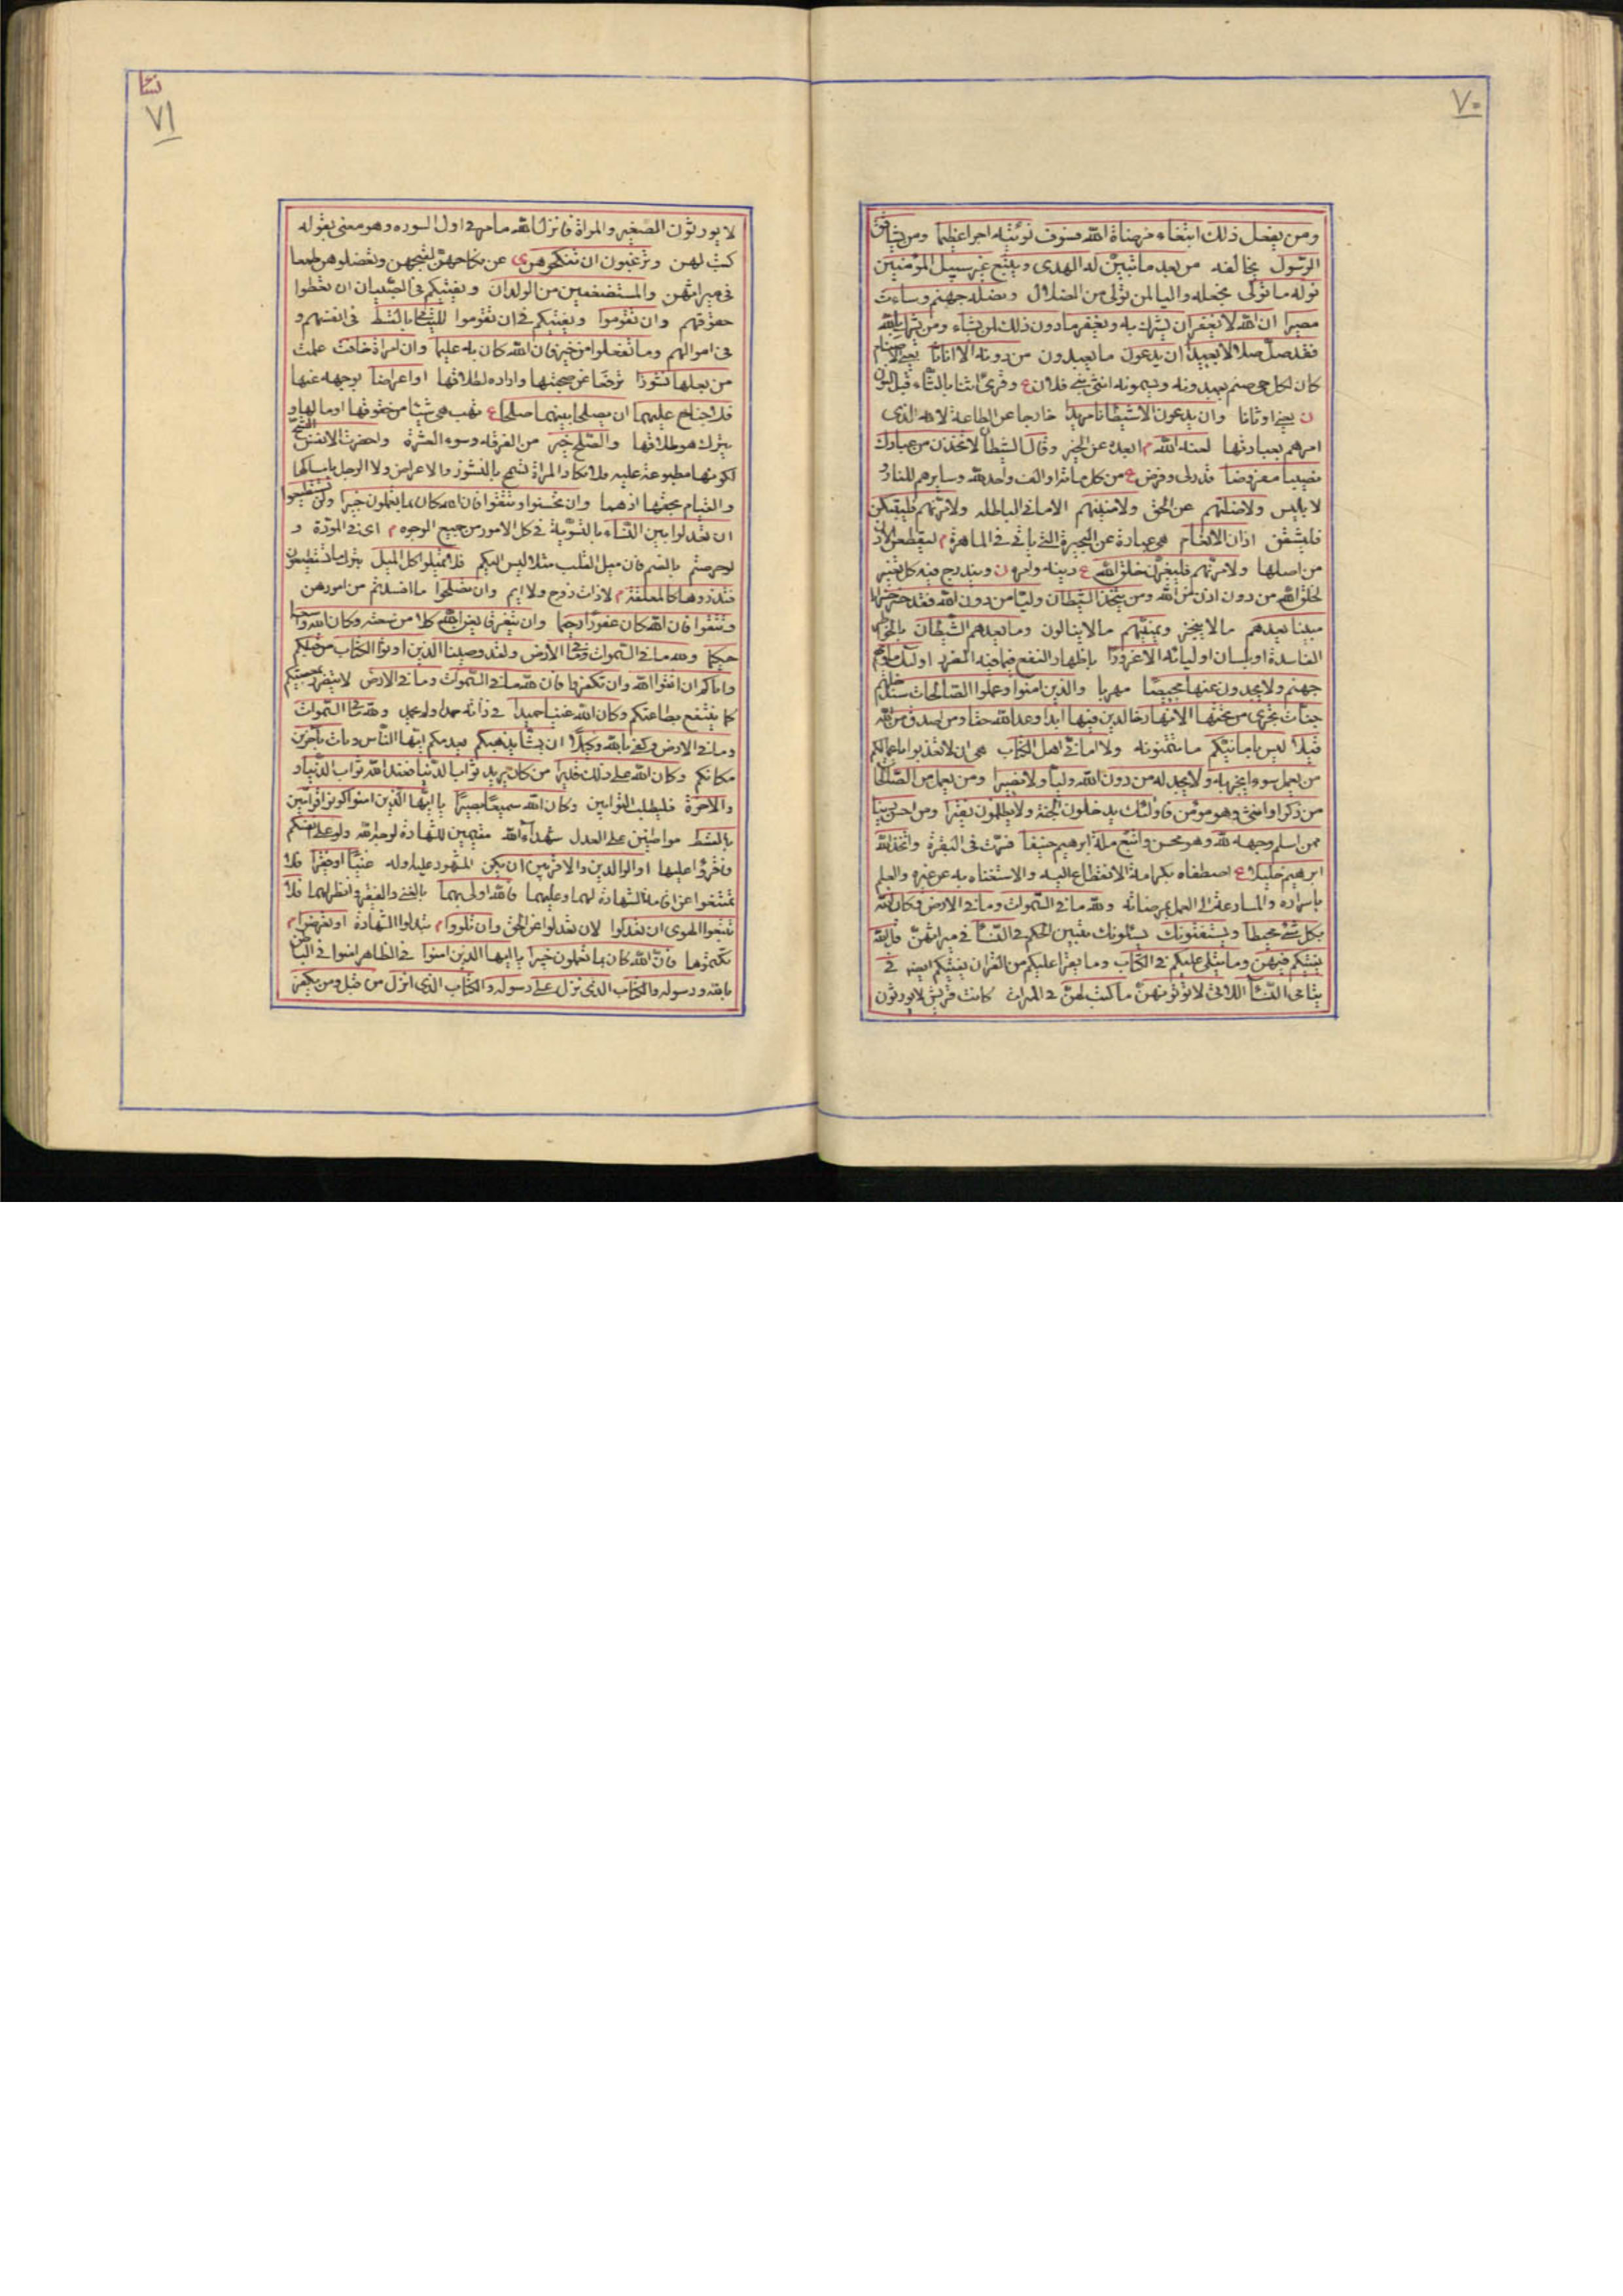 ٧٠
ومن يفعل ذلك ابتغاء مرضاة الله فسوف نؤتيه اجرا عظيما ومن يشاقق
الرسول يخالفه من بعد ما تبين له الهدى ويتبع غير سبيل المؤمنين
نوله ما تولى نجعله واليا لمن تولى من الضلال ونصله جهنم وساءت
مصيرا ان الله لا يغفر ان يشرك به ويغفر ما دون ذلك لمن يشاء ومن يشرك بالله
فقد ضل ضلالا بعيدا ان يدعون ما يعبدون من دونه الا اناثا يعنى الاصنام
كان لكل حى صنم يعبدونه ويسمونه انثى بنى فلان ع وقرئ اثنا بالثاء قبل النون
ن يعنى اوثانا وان يدعون الا شيطانا مريدا خارجا عن الطاعة لانه الذى
امرهم بعبادتها لعنه الله م ابعده عن الخير وقال الشيطان لاتخذن من عبادك
نصيبا مفروضا قدر لى وفرض ع من كل مائة الف واحد لله وسايرهم للنار و
لابليس ولاضلنهم عن الحق ولامنينهم الامانى الباطله ولامرنهم فليبتكن
فليشقن اذان الانعام هى عبارة عن البحيرة التى يأتى فى المائدة م ليقطعن الاذن
من اصلها ولامرنهم فليغيرن خلق الله ع دينه وامره ن ويندرج فيه كل تغيير
لخلق الله من دون اذن من الله ومن يتخذ الشيطان وليا من دون الله فقد خسر خسرانا
مبينا يعدهم ما لا ينجز ويمنيهم ما لا ينالون وما يعدهم الشيطان بالخواطر
الفاسدة او بلسان اوليائه الا غرورا باظهار النفع فيما فيه الضرر اولئك مأويهم
جهنم ولا يجدون عنها محيصا مهربا والذين امنوا وعملوا الصالحات سندخلهم
جنات تجرى من تحتها الانهار خالدين فيها ابدا وعد الله حقا ومن اصدق من الله
قيلا ليس بامانيكم ما تتمنونه ولا امانى اهل الكتاب هى ان لا تعذبوا باعمالكم
من يعمل سوءا يجز به ولا يجد له من دون الله وليا ولا نصيرا ومن يعمل من الصالحات
من ذكر او انثى وهو مؤمن فاولئك يدخلون الجنة ولا يظلمون نقيرا ومن احسن دينا
ممن اسلم وجهه لله وهو محسن واتبع ملة ابرهيم حنيفا فسرت فى البقرة واتخذ الله
ابرهيم خليلا ع اصطفاه بكرامة الانقطاع اليه والاستغناء به عن غيره والعلم
باسراره والمسارعة الى العمل بمرضاته ولله ما فى السموات وما فى الارض وكان الله
بكل شئ محيطا ويستفتونك يسئلونك تبيين الحكم فى النساء فى ميراثهن قل الله
يفتيكم فيهن وما يتلى عليكم فى الكتاب وما يقرأ عليكم من القران يفتيكم ايضا فى
يتامى النساء اللاتى لا تؤتونهن ما كتب لهن فى الميراث كانت قريش لا يورثون
نسا
٧١
لا يورثون الصغير والمراة فانزل الله ما مر فى اول السوره وهو معنى بقوله
كتب لهن وترغبون ان تنكحوهن ى عن نكاحهن لقبحهن وتعضلوهن طمعا
فى ميراثهن والمستضعفين من الولدان ويفتيكم فى الصبيان ان تعطوا
حقوقهم وان تقوموا ويفتيكم فى ان تقوموا لليتامى بالقسط فى انفسهم و
فى اموالهم وما تفعلوا من خير فان الله كان به عليما وان امراة خافت علمت
من بعلها نشوزا ترفعا عن صحبتها وارادة لطلاقها او اعراضا بوجهه عنها
فلا جناح عليهما ان يصلحا بينهما صلحا ع تهب هى شيئا من حقوقها او مالها و
يترك هو طلاقها والصلح خير من الفرقه وسوء العشرة واحضرت الانفس الشح
لكونها مطبوعة عليه فلا تكاد المراة تسمح بالنشوز والاعراض ولا الرجل بامساكها
والقيام بحقها اذ هما وان تحسنوا وتتقوا فان الله كان بما تعملون خبيرا ولن تستطيعوا
ان تعدلوا بين النساء بالتسوية فى كل الامور من جميع الوجوه م اى فى المودة و
لو حرصتم بالقسم فان ميل القلب مثلا ليس اليكم فلا تميلوا كل الميل بترك ما تستطيعون
فتذروها كالمعلقة م لا ذات زوج ولا ايم وان تصلحوا ما افسدتم من امورهن
وتتقوا فان الله كان غفورا رحيما وان يتفرقا يغن الله كلا من سعته وكان الله واسعا
حكيما ولله ما فى السموات وما فى الارض ولقد وصينا الذين اوتوا الكتاب من قبلكم
واياكم ان اتقوا الله وان تكفروا فان لله ما فى السموات وما فى الارض لا يتضرر بمعصيتكم
كما ينتفع بطاعتكم وكان الله غنيا حميدا فى ذاته حمد او لم يحمد ولله ما فى السموات
وما فى الارض وكفى بالله وكيلا ان يشأ يذهبكم يعدمكم ايها الناس ويات بآخرين
مكانكم وكان الله على ذلك قديرا من كان يريد ثواب الدنيا فعند الله ثواب الدنيا و
والاخرة فليطلب الثوابين وكان الله سميعا بصيرا يا ايها الذين امنوا كونوا قوامين
بالقسط مواظبين على العدل شهداء لله مقيمين للشهادة لوجه الله ولو على انفسكم
فاقروا عليها او الوالدين والاقربين ان يكن المشهود عليه وله غنيا او فقيرا فلا
تمتنعوا عن اقامة الشهادة لهما وعليهما فالله اولى بهما بالغنى والفقير وانظر لهما فلا
تتبعوا الهوى ان تعدلوا لان تعدلوا عن الحق وان تلووا م تبدلوا الشهادة او تعرضوا م
تكتموها فان الله كان بما تعملون خبيرا يا ايها الذين امنوا فى الظاهر امنوا فى الباطن
بالله ورسوله والكتاب الذى نزل على رسوله والكتاب الذى انزل من قبل ومن يكفر